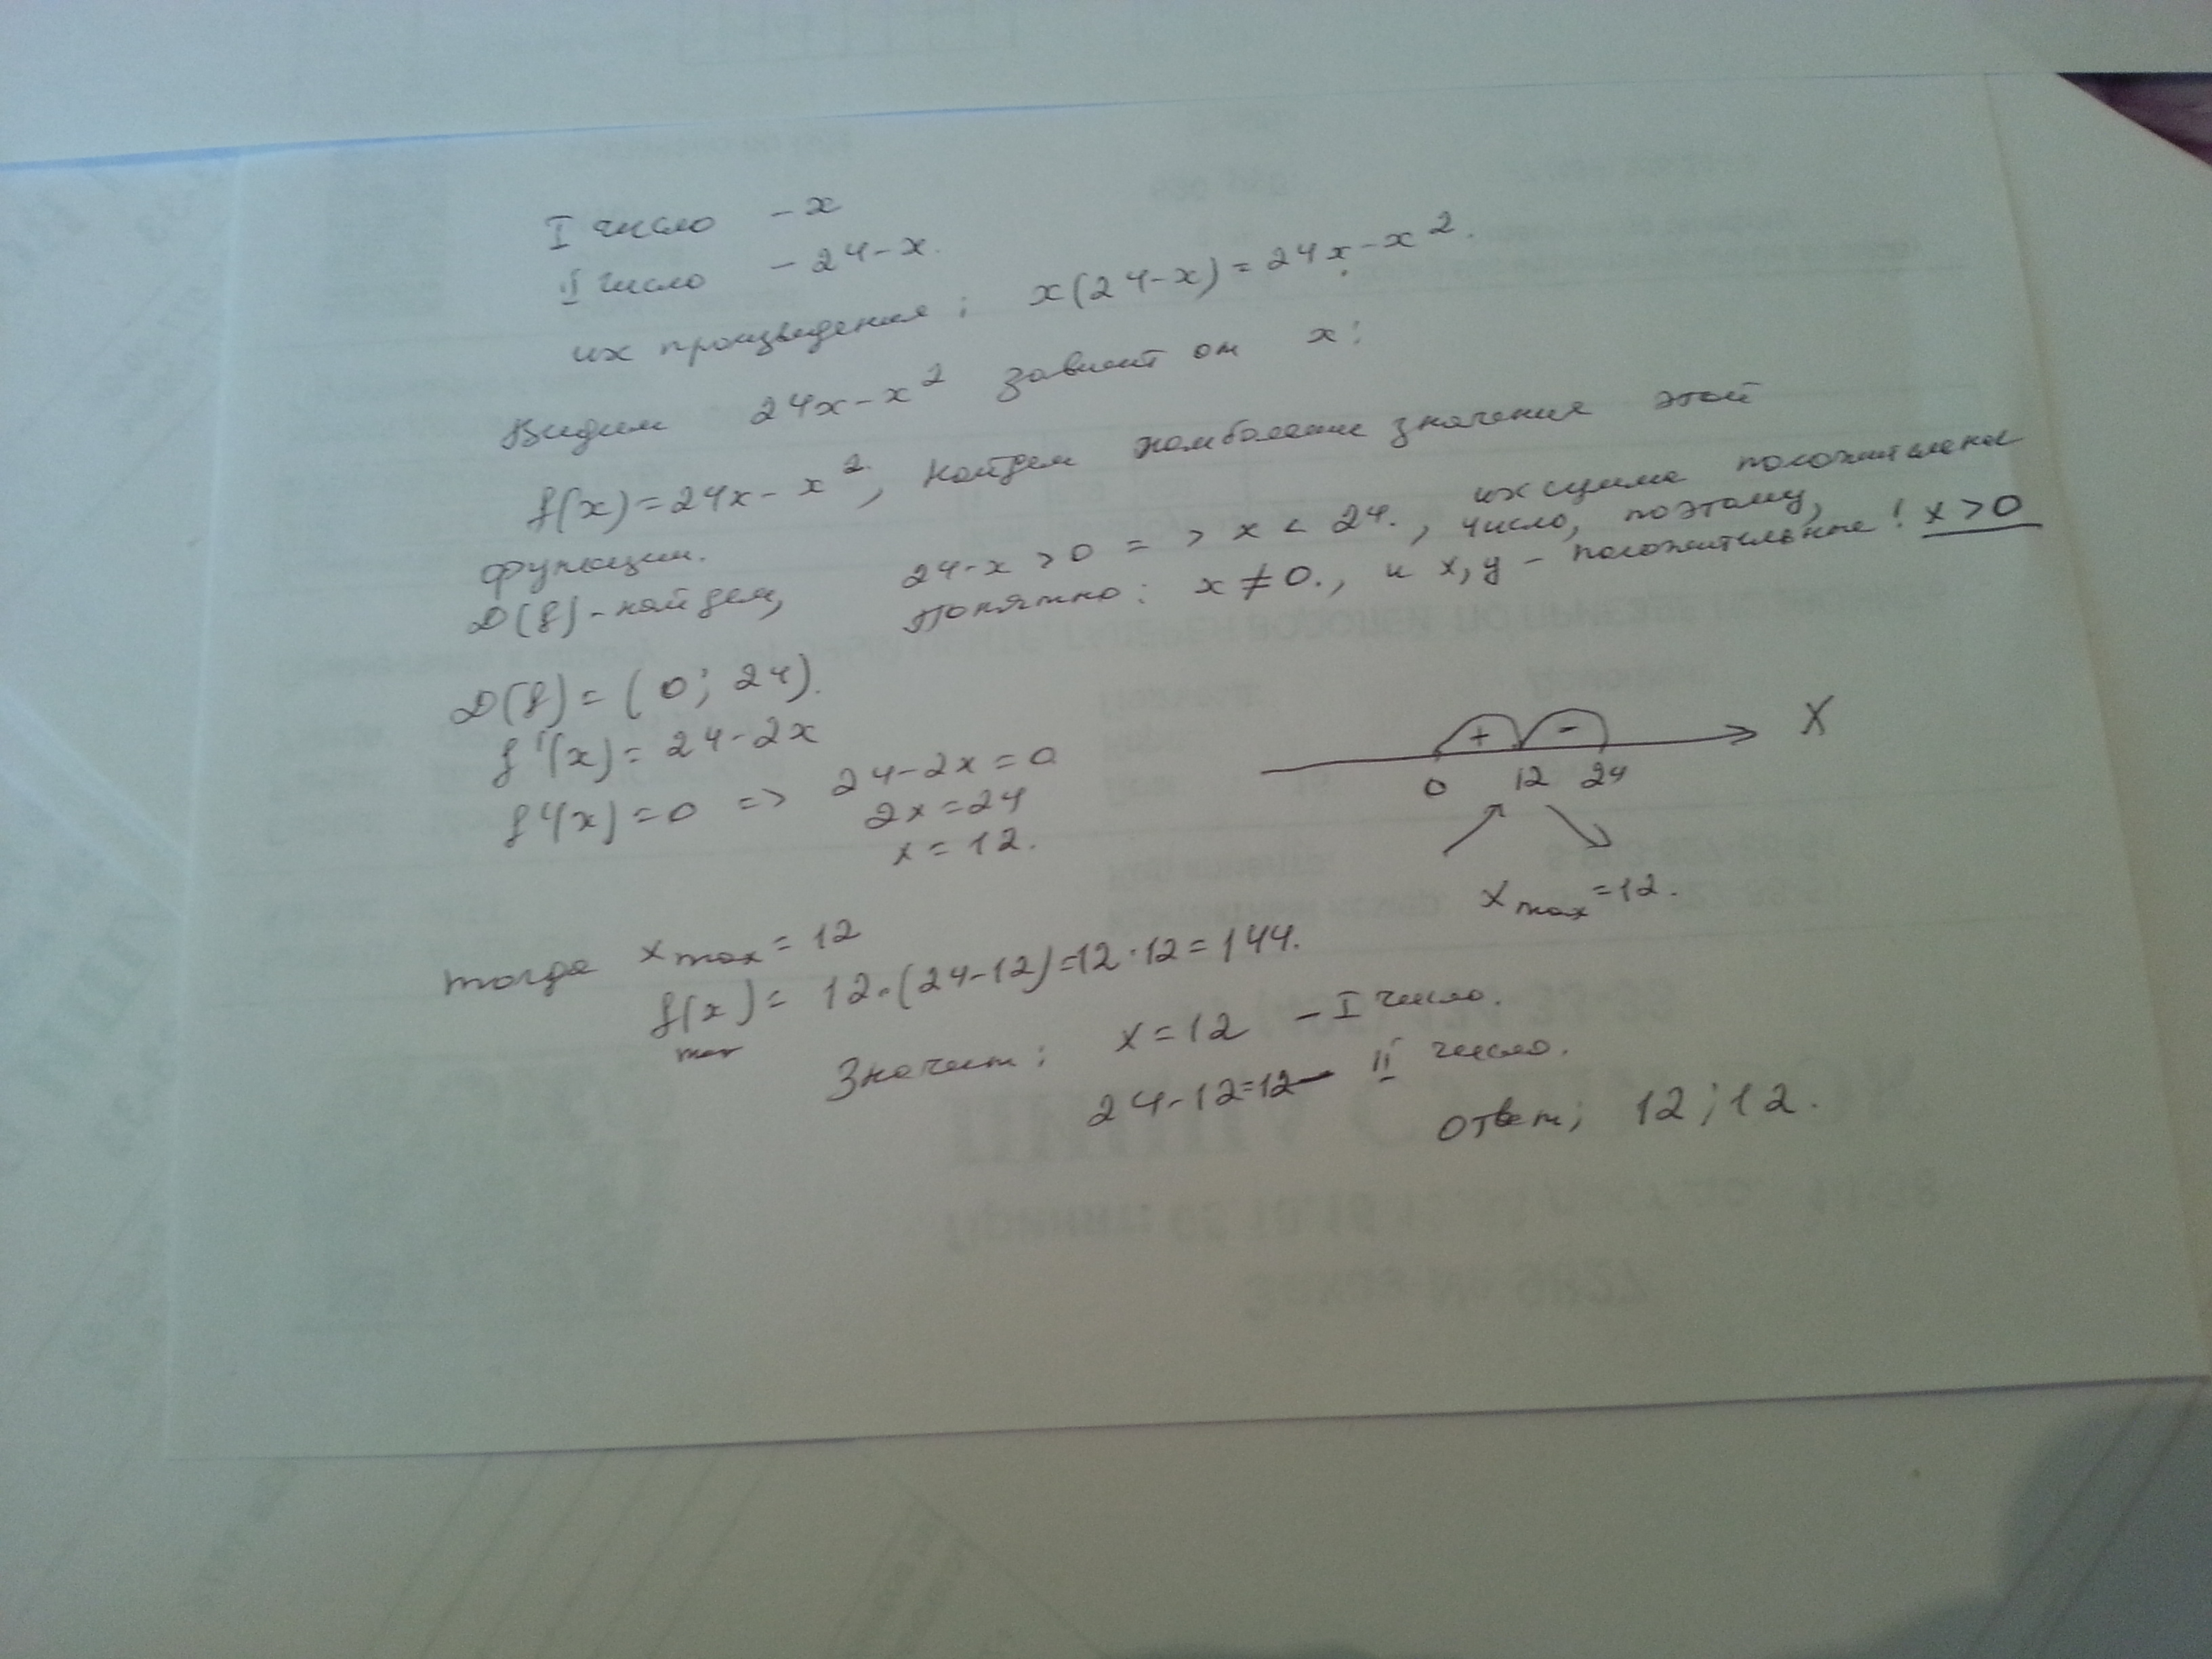 I число - x
II число - 24-x.
их произведения; x(24-x) = 24x-x².
Видим 24x-x² зависит от x:
f(x) = 24x - x², найдем наибольшие значения этой
функции.
D(f) - найдем, 24-x > 0 => x < 24., их сумма положительное число, поэтому,
Понятно: x ≠ 0., и x, y - положительные! x > 0
D(f) = (0; 24).
f'(x) = 24-2x
f'(x) = 0 => 24-2x = 0
2x = 24
x = 12.
+ -
0 12 24 X
x max = 12.
тогда x max = 12
f(x) = 12·(24-12) = 12·12 = 144.
max
Значит; x = 12 - I число.
24-12=12 - II число.
Ответ; 12; 12.